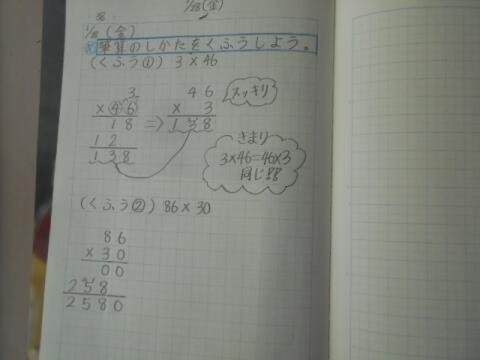 1/28(金)
1/28(金)
筆算のしかたをくふうしよう。
(くふう①) 3×46
3
×46
18
12
138
⇒
46
× 3
138
スッキリ
きまり
3×46=46×3
同じ!!
(くふう②) 86×30
86
×30
00
258
2580